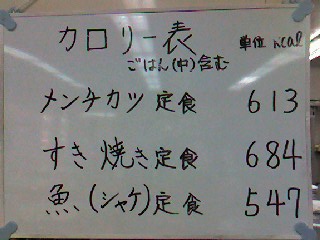 カロリー表 単位 kcal
ごはん(中)含む
メンチカツ定食 613
すき焼き定食 684
魚(シャケ)定食 547